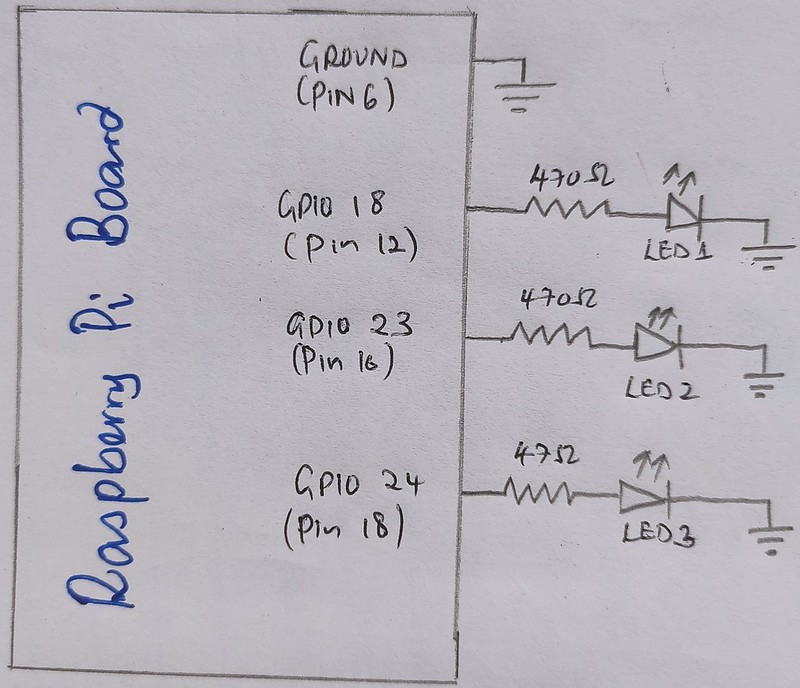 Raspberry Pi Board
GROUND
(PIN 6)
GPIO 18
(Pin 12)
470Ω
LED1
GPIO 23
(Pin 16)
470Ω
LED2
GPIO 24
(Pin 18)
47Ω
LED3